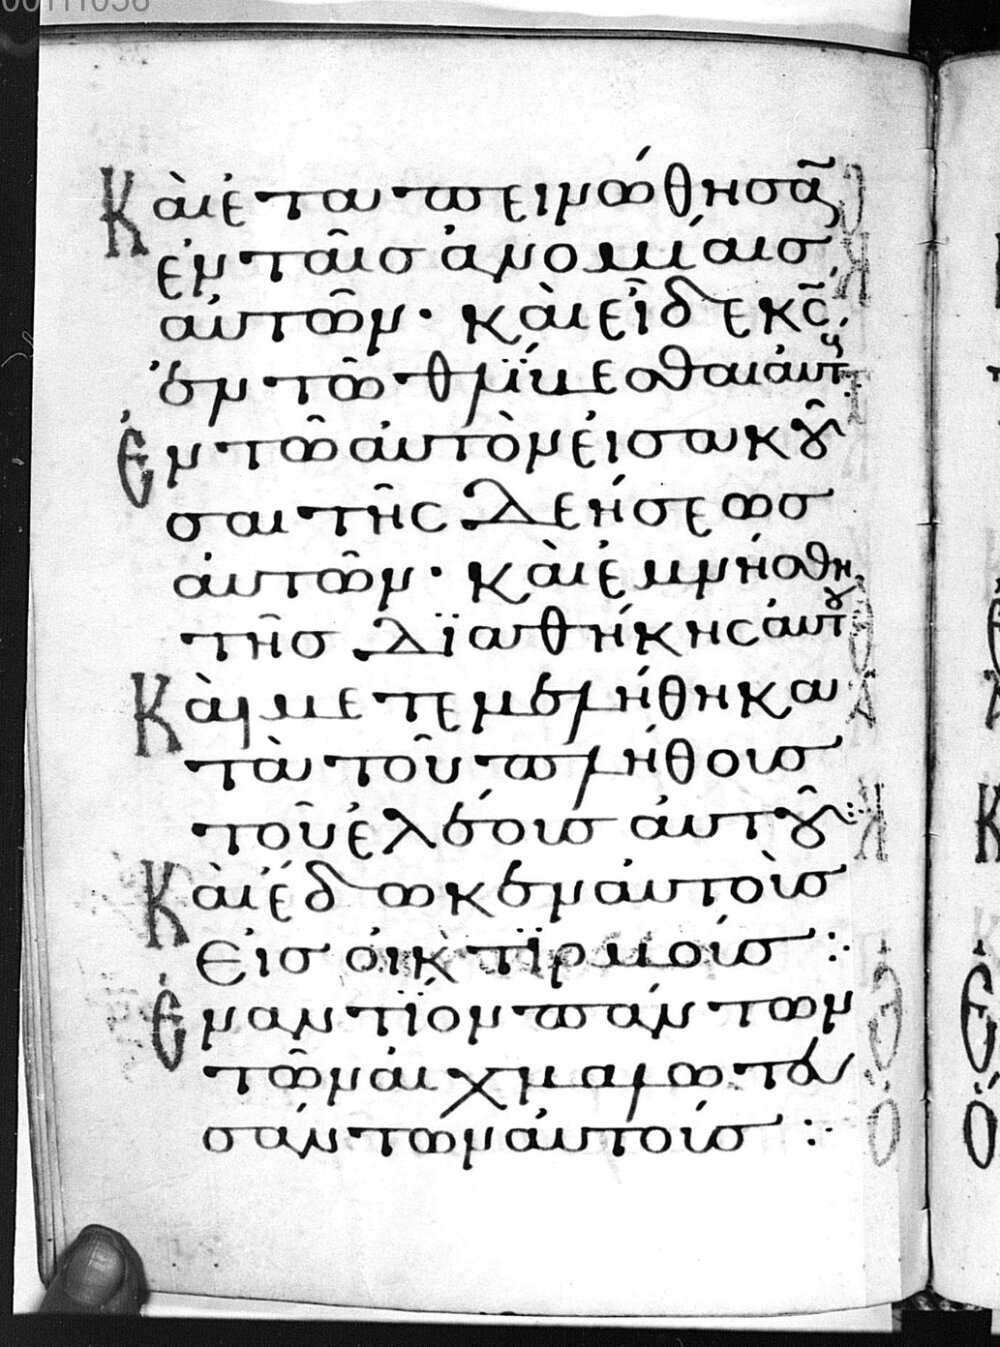 00111058
Καὶ ἐταπεινώθησα̃
ἐν ταῖσ ἀνομίαισ
ἀυτῶν· καὶ εἶδε κ̅ς̅,
ἐν τῶ θλίβεσθαι ἀυτ
Ἐν τῶ ἀυτὸν εἰσακȣ̃
σαι τῆς δεήσεωσ
ἀυτῶν· καὶ ἐμνήσθη
τῆσ διαθήκης ἀυτȣ
Καὶ μετεμελήθη κα
τὰ τοῦ πλήθουσ
τοῦ ἐλέουσ ἀυτȣ̃:
Καὶ ἔδωκεν ἀυτοὺσ
Εἰσ οἰκτϊρμοίσ :·
Ἐναντΐον πάντων
τῶν αἰχμαλωτευ
σάντων ἀυτοίσ :·